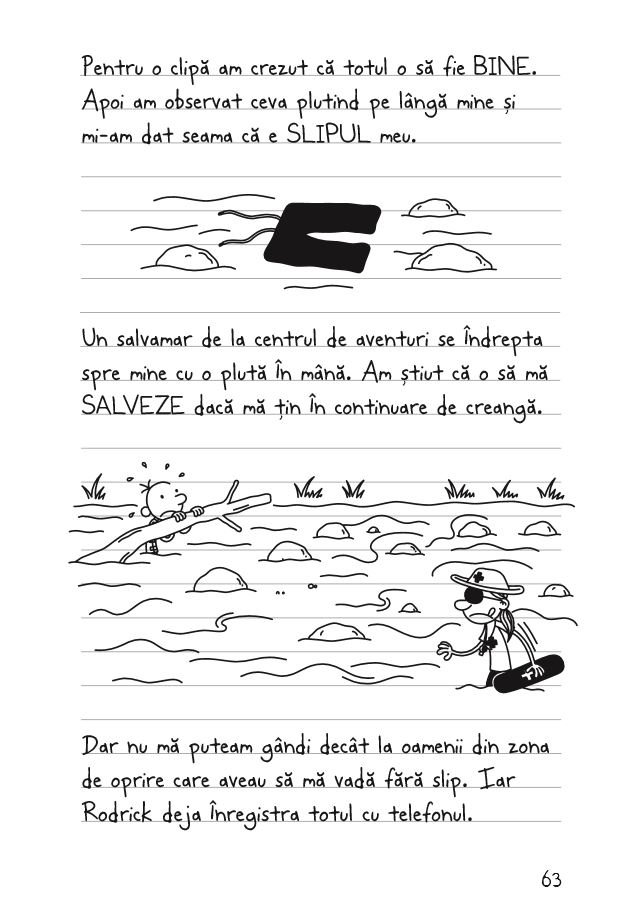 Pentru o clipă am crezut că totul o să fie BINE.
Apoi am observat ceva plutind pe lângă mine și
mi-am dat seama că e SLIPUL meu.
Un salvamar de la centrul de aventuri se îndrepta
spre mine cu o plută în mână. Am știut că o să mă
SALVEZE dacă mă țin în continuare de creangă.
Dar nu mă puteam gândi decât la oamenii din zona
de oprire care aveau să mă vadă fără slip. Iar
Rodrick deja înregistra totul cu telefonul.
63